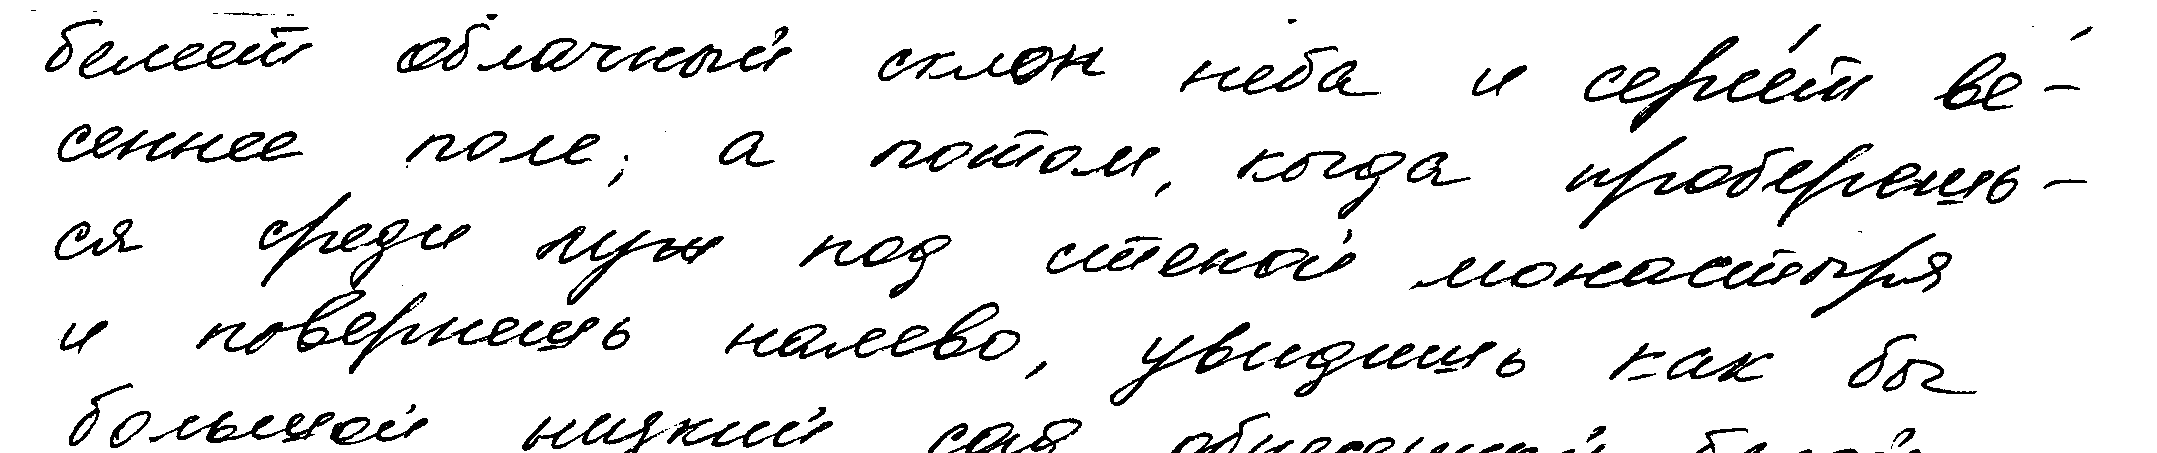 белеет облачный склон неба и сереет ве-
сеннее поле; а потом, когда проберешь-
ся среди луж под стеной монастыря
и повернешь налево, увидишь как бы
большой низкий сад обнесенный белой